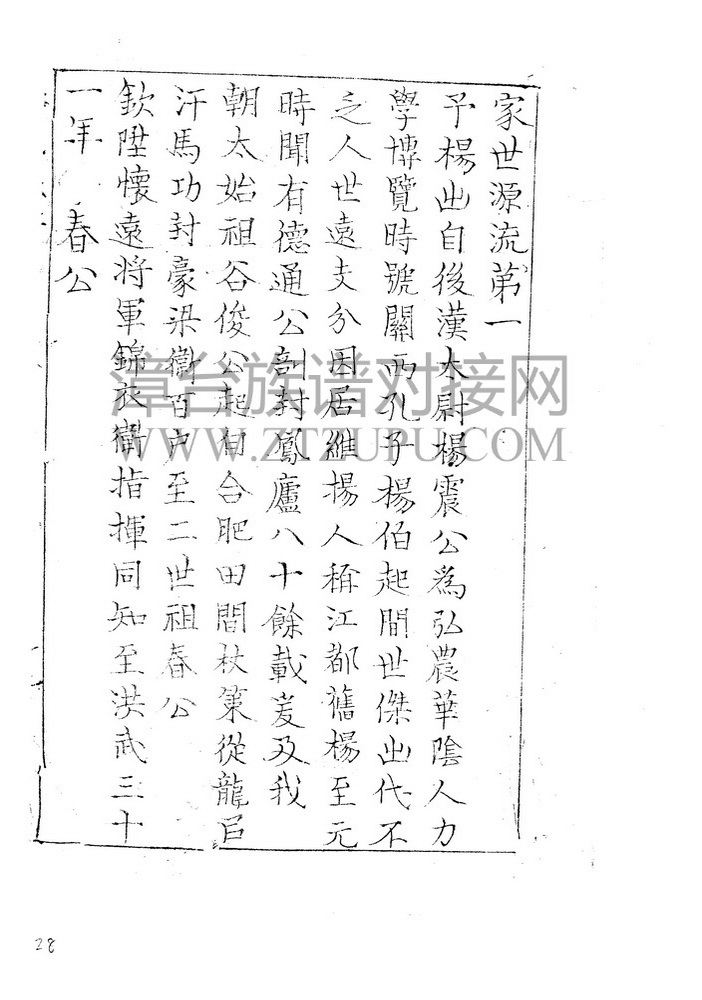 家世源流第一
予楊出自後漢太尉楊震公為弘農華陰人力
學博覽時號關西孔子楊伯起間世傑出代不
乏人世遠支分因居維揚人稱江都舊楊至元
時聞有德通公剖封鳳廬八十餘載爰及我
朝太始祖谷俊公起自合肥田間杖策從龍已
汗馬功封豪梁衛百户至二世祖春公
欽陞懷遠将軍錦衣衛指揮同知至洪武三十
一年 春公
漳台族谱对接网
WWW.ZTZUPU.COM
28